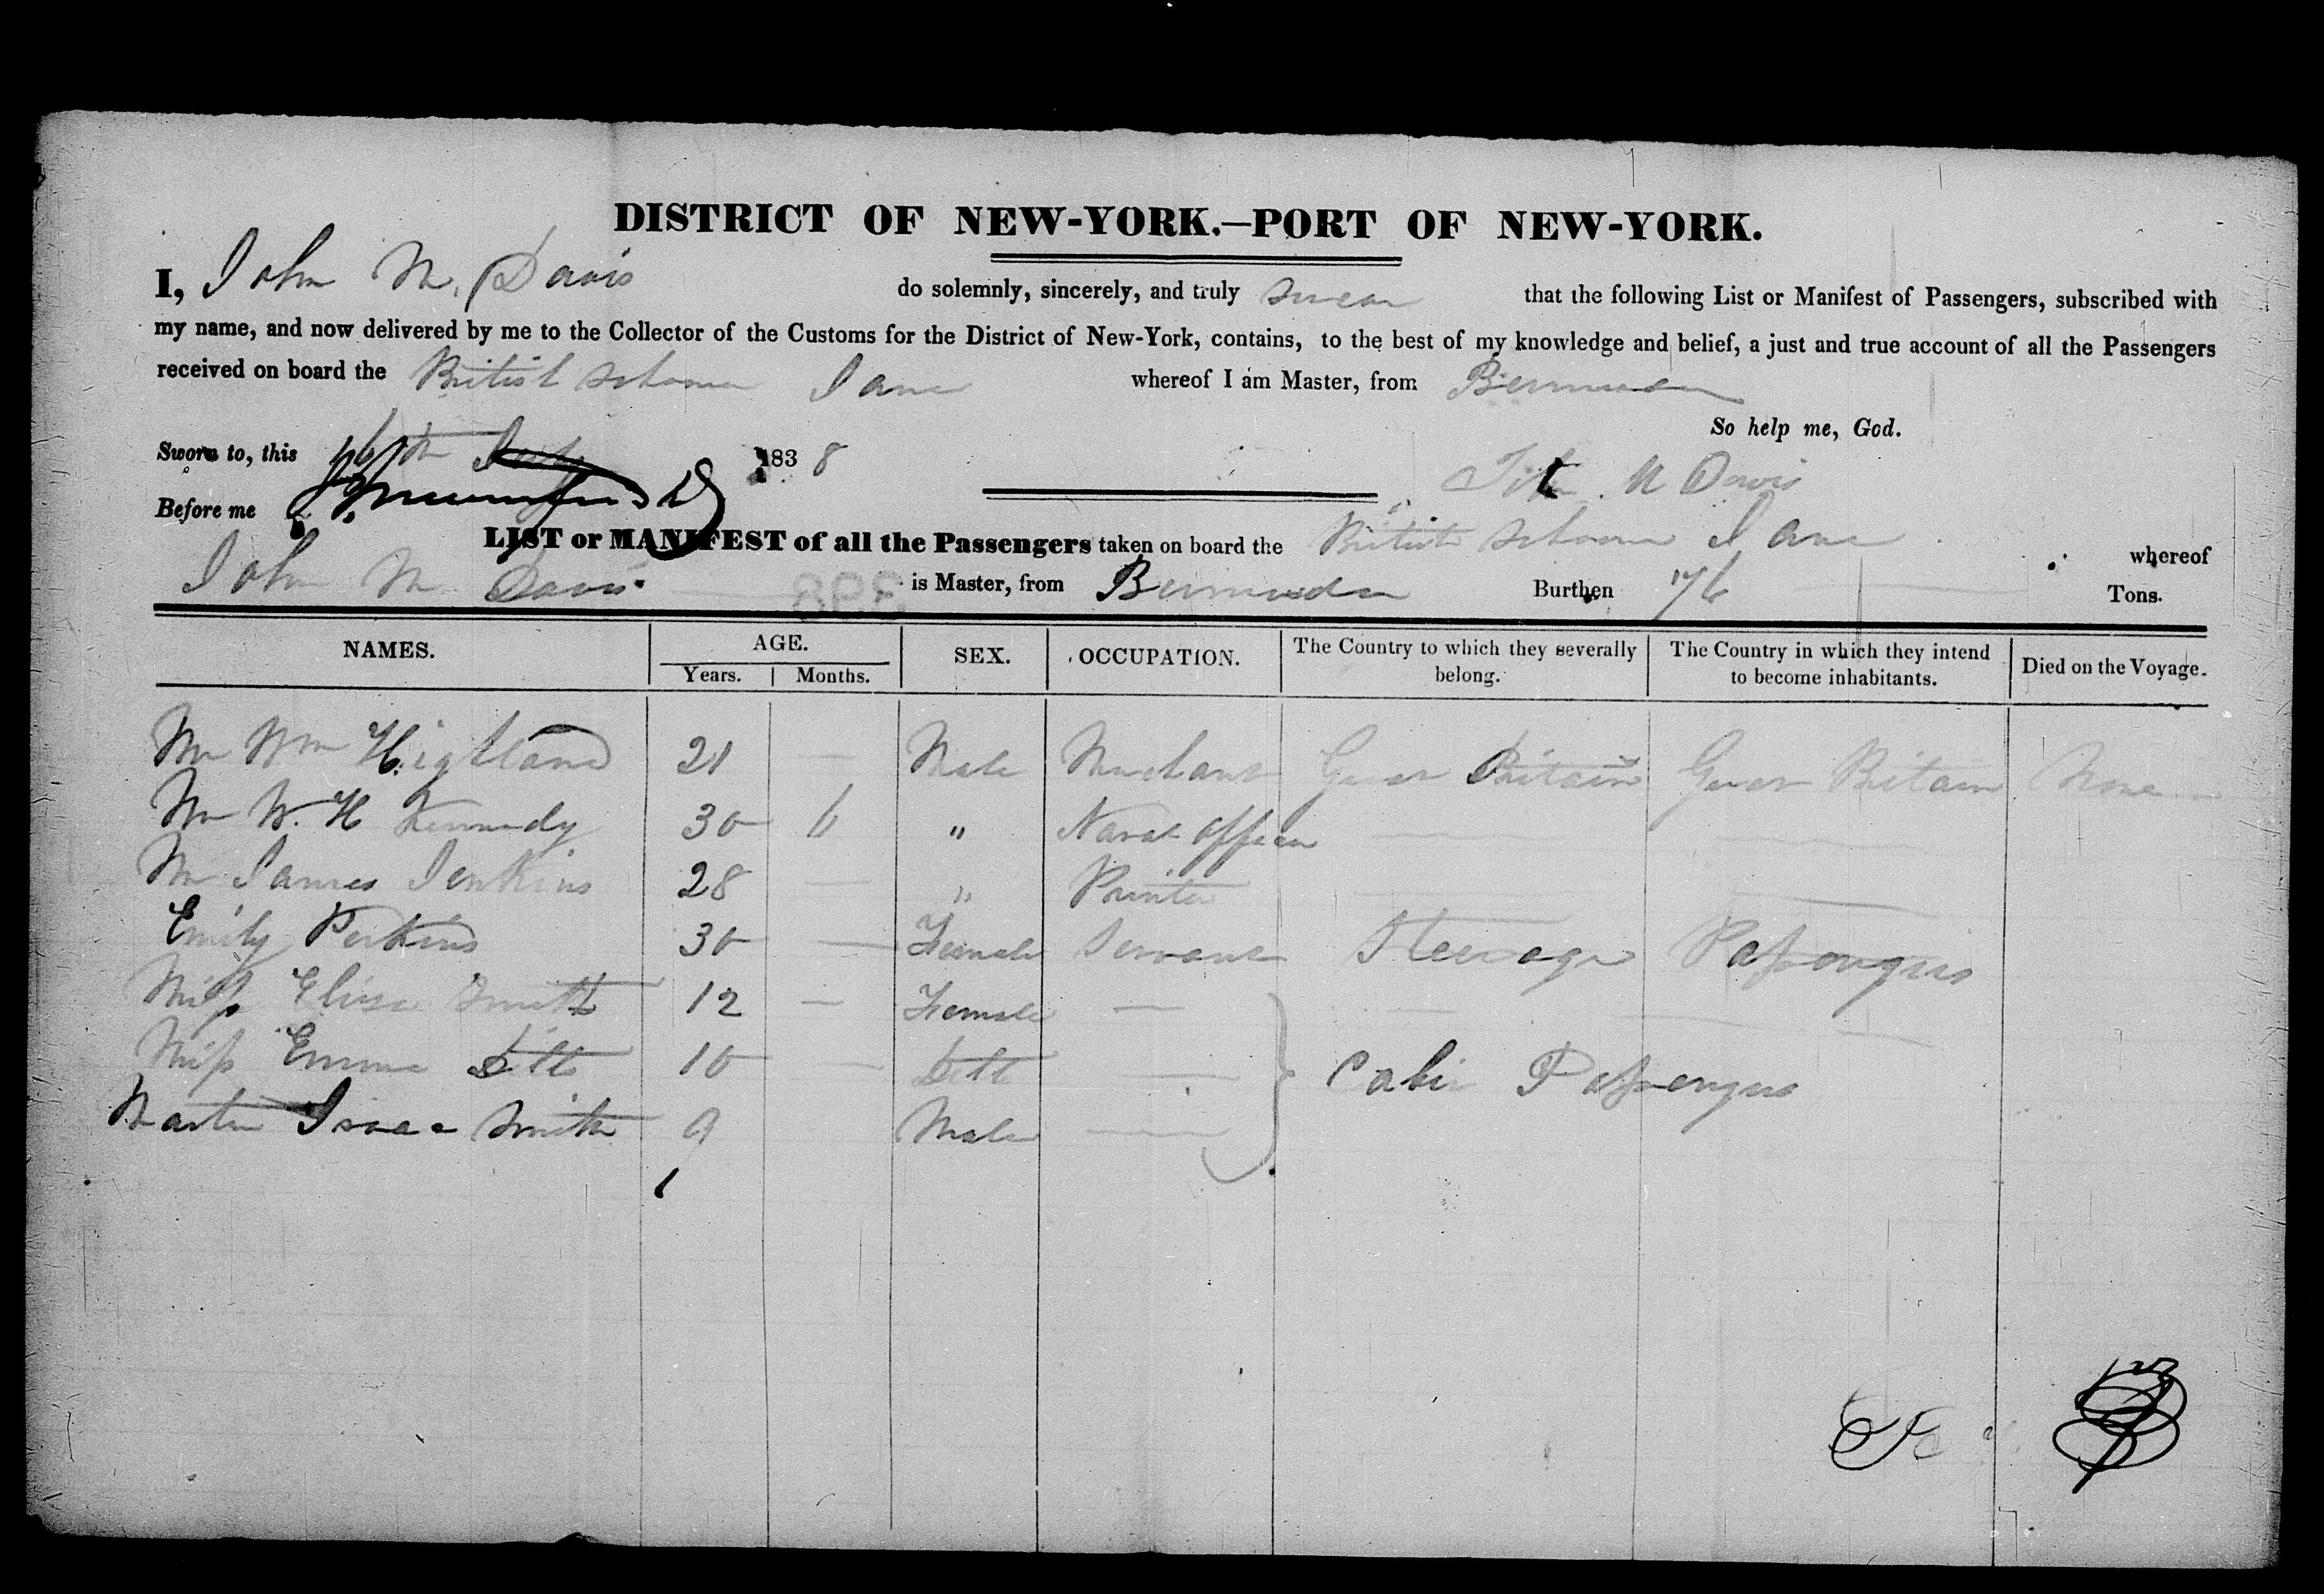 DISTRICT OF NEW-YORK.—PORT OF NEW-YORK.
I, John M. Davis do solemnly, sincerely, and truly swear that the following List or Manifest of Passengers, subscribed with
my name, and now delivered by me to the Collector of the Customs for the District of New-York, contains, to the best of my knowledge and belief, a just and true account of all the Passengers
received on board the British schooner Jane whereof I am Master, from Bermuda
So help me, God.
Sworn to, this 16th July 1838
John M Davis
Before me
LIST or MANIFEST of all the Passengers taken on board the British schooner Jane whereof
John M Davis is Master, from Bermuda Burthen 76 Tons.
NAMES. AGE. SEX. OCCUPATION. The Country to which they severally belong. The Country in which they intend to become inhabitants. Died on the Voyage.
Years. Months.
Mr Wm Highland 21 — Male Merchant Great Britain Great Britain None
Mr W. H Kennedy 30 6 " Naval officer
Mr James Jenkins 28 — " Printer
Emily Perkins 30 — Female Servant Steerage Passengers
Miss Eliza Smith 12 — Female —
Miss Emma Ditto 10 — Ditto — Cabin Passengers
Master Isaac Smith 9 Male —